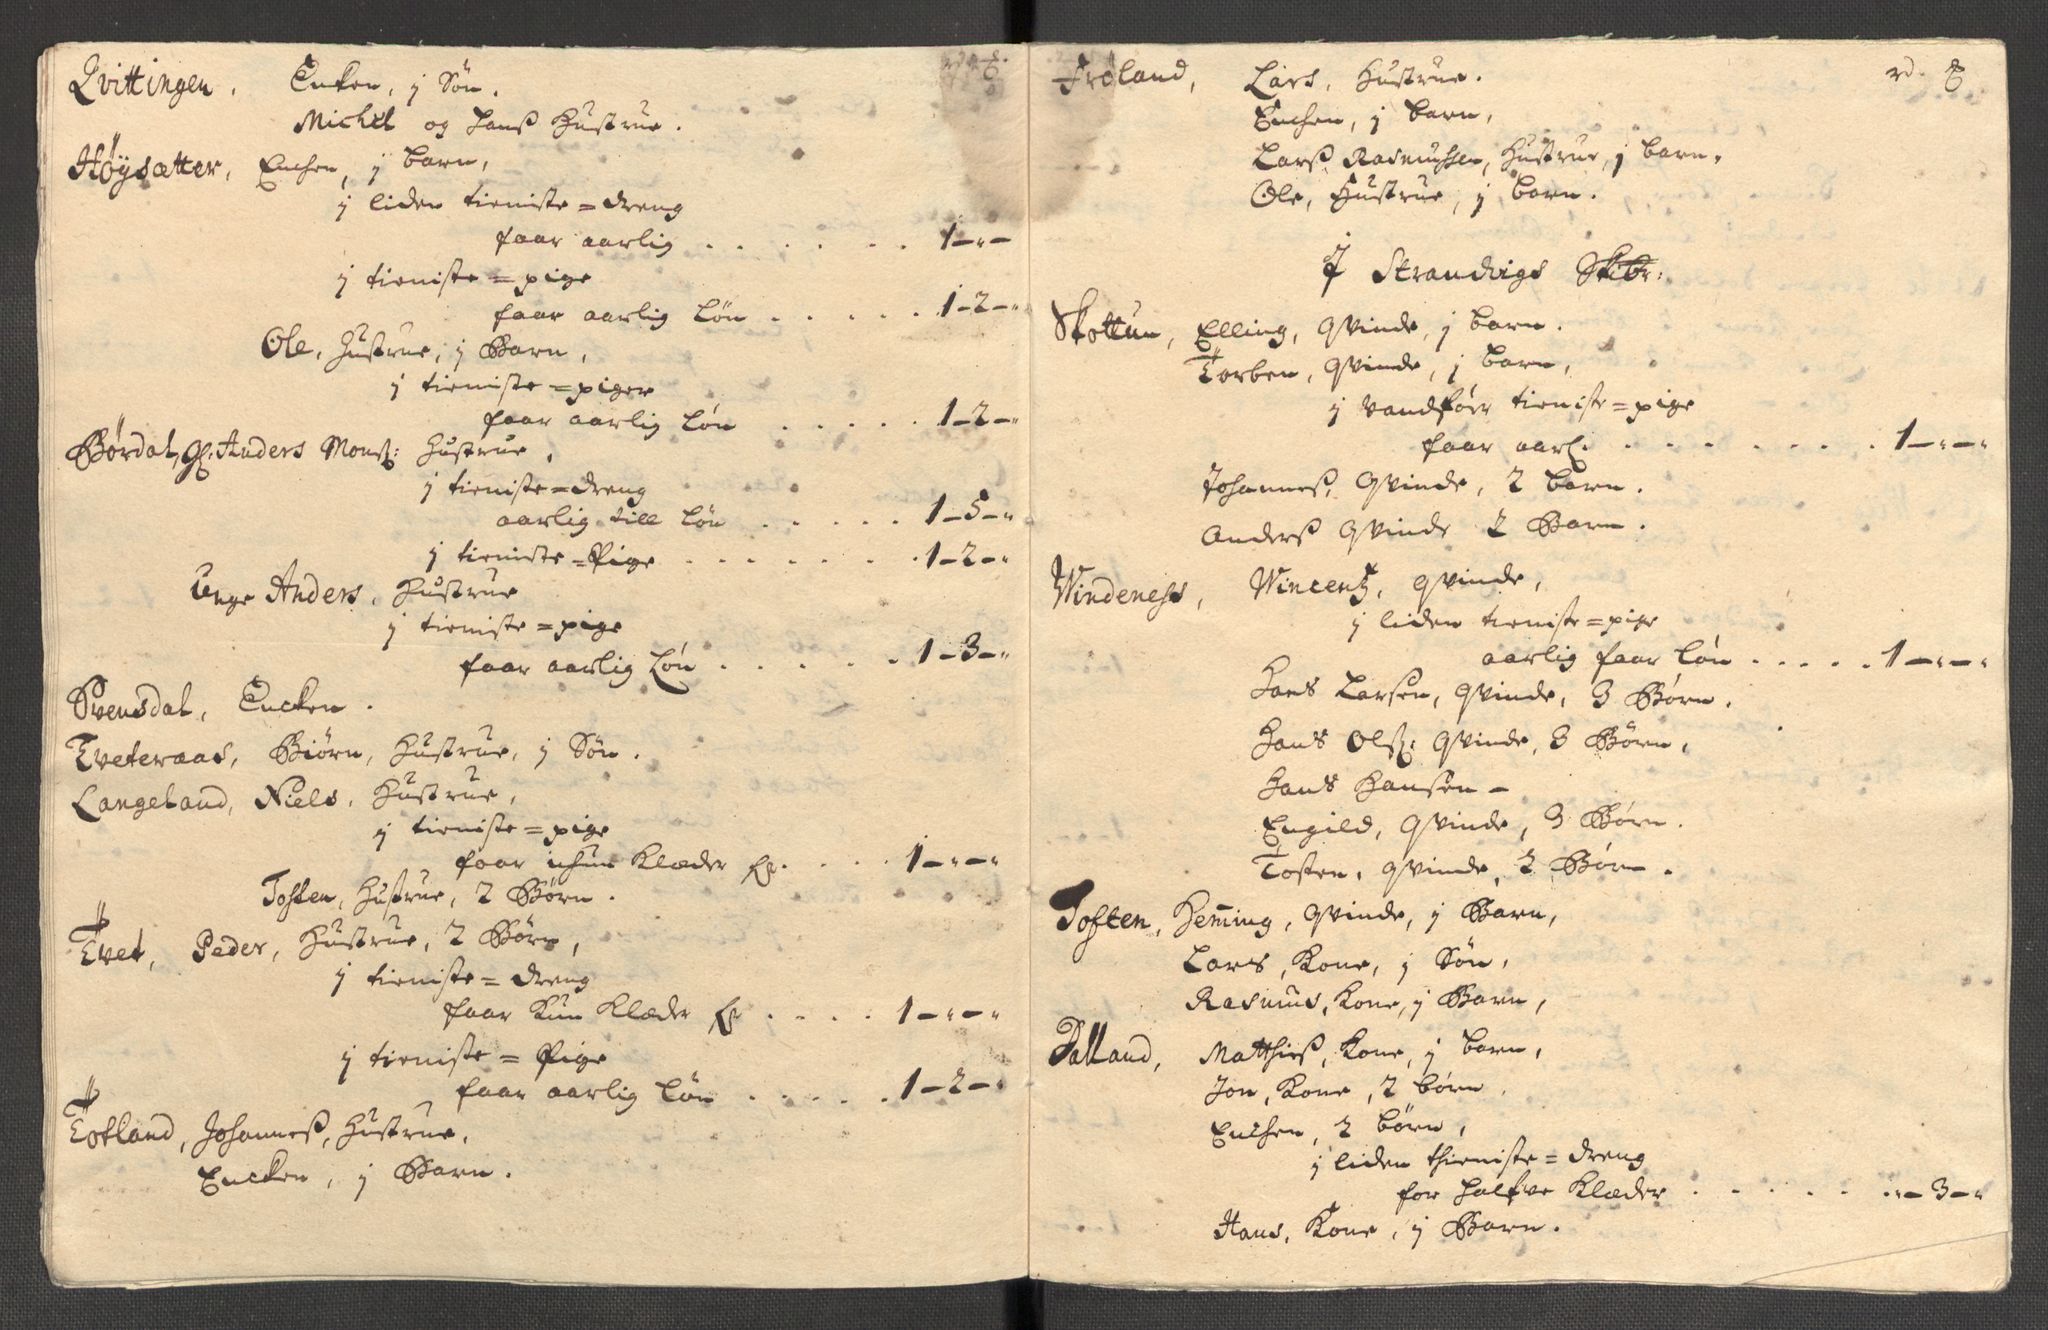 Qvittingen, Encken, j Sön.
Michel og hans Hustrue.
Höysætter, Enchen, j barn,
j liden tieniste=dreng
faar aarlig . . . . . . 1-"-
j tieniste=pige
faar aarlig Lön . . . . . 1-2-"
Ole, Hustrue, j Barn,
j tieniste=piger
faar aarlig Lön . . . . . 1-2-"
Bördal, Gl: Anders Monß: Hustrue,
j tieniste=dreng
aarlig till Lön . . . . . 1-5-"
j tieniste=Pige . . . . . . . 1-2-"
Unge Anders, Hustrue
j tieniste=pige
faar aarlig Lön . . . . . . 1-3-"
Svensdal, Encken.
Tveteraas, Biörn, Hustrue, j Sön.
Langeland, Niels, Hustrue,
j tieniste=pige
faar Klæder . . . . 1-"-"
Tosten, Hustrue, 2 Börn.
Tvet, Peder, Hustrue, 2 Börn,
j tieniste=dreng
faar Kun Klæder . . . . 1-"-"
j tieniste=Pige
faar aarlig Lön . . . . . 1-2-"
Totland, Johanneß, Hustrue,
Encken, j Barn.
Fröland, Lars, Hustrue. rd. ß
Enchen, j barn,
Larß Rasmussen, Hustrue, j barn.
Ole, Hustrue, j barn.
J Strandvigs Skibr:
Skottun, Elling, Qvinde, j barn.
Torben, Qvinde, j barn,
j Vandför tieniste=pige
faar aarl. . . . . . . . 1-"-"
Johanneß, Qvinde, 2 barn.
Anderß Qvinde 2 Barn.
Windeness, Wincentz, Qvinde,
j liden tieniste=pige
aarlig faar Lön . . . . . 1-"-"
Hans Larsen, Qvinde, 3 Börn.
Hans Olß: Qvinde, 3 Börn,
Hans Hansen -
Engild, Qvinde, 3 Börn.
Tosten, Qvinde, 2 Börn.
Toften, Heming, Qvinde, j Barn,
Lars, Kone, j Sön,
Rasmus, Kone, j Barn,
Dalland, Matthiß, Kone, j barn,
Jon, Kone, 2 börn,
Enchen, 2 börn,
j liden thieniste=dreng
for halfve Klæder . . . . . . "-3-"
Hans, Kone, j Barn.